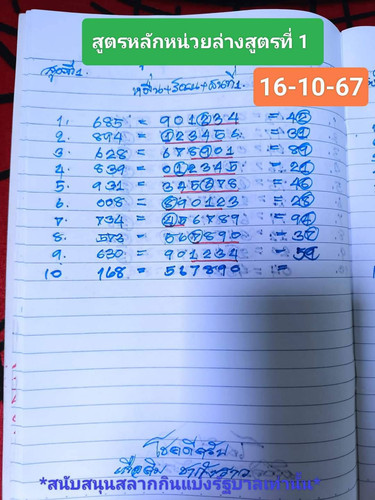 สูตรหลักหน่วยล่างสูตรที่ 1
สูตรที่ 1.
16-10-67
1. 685 = 901234 = 42
2 894 = 123456 = 31
3 628 = 678901 = 89
4. 839 = 012345 = 21
5. 931 = 345678 = 46
6. 008 = 890123 = 28
7. 734 = 456789 = 94
8. 573 = 567890 = 37
9. 630 = 901234 = 54
10 168 = 567890 =
โชคดีครับ
*สนับสนุนสลากกินแบ่งรัฐบาลเท่านั้น*